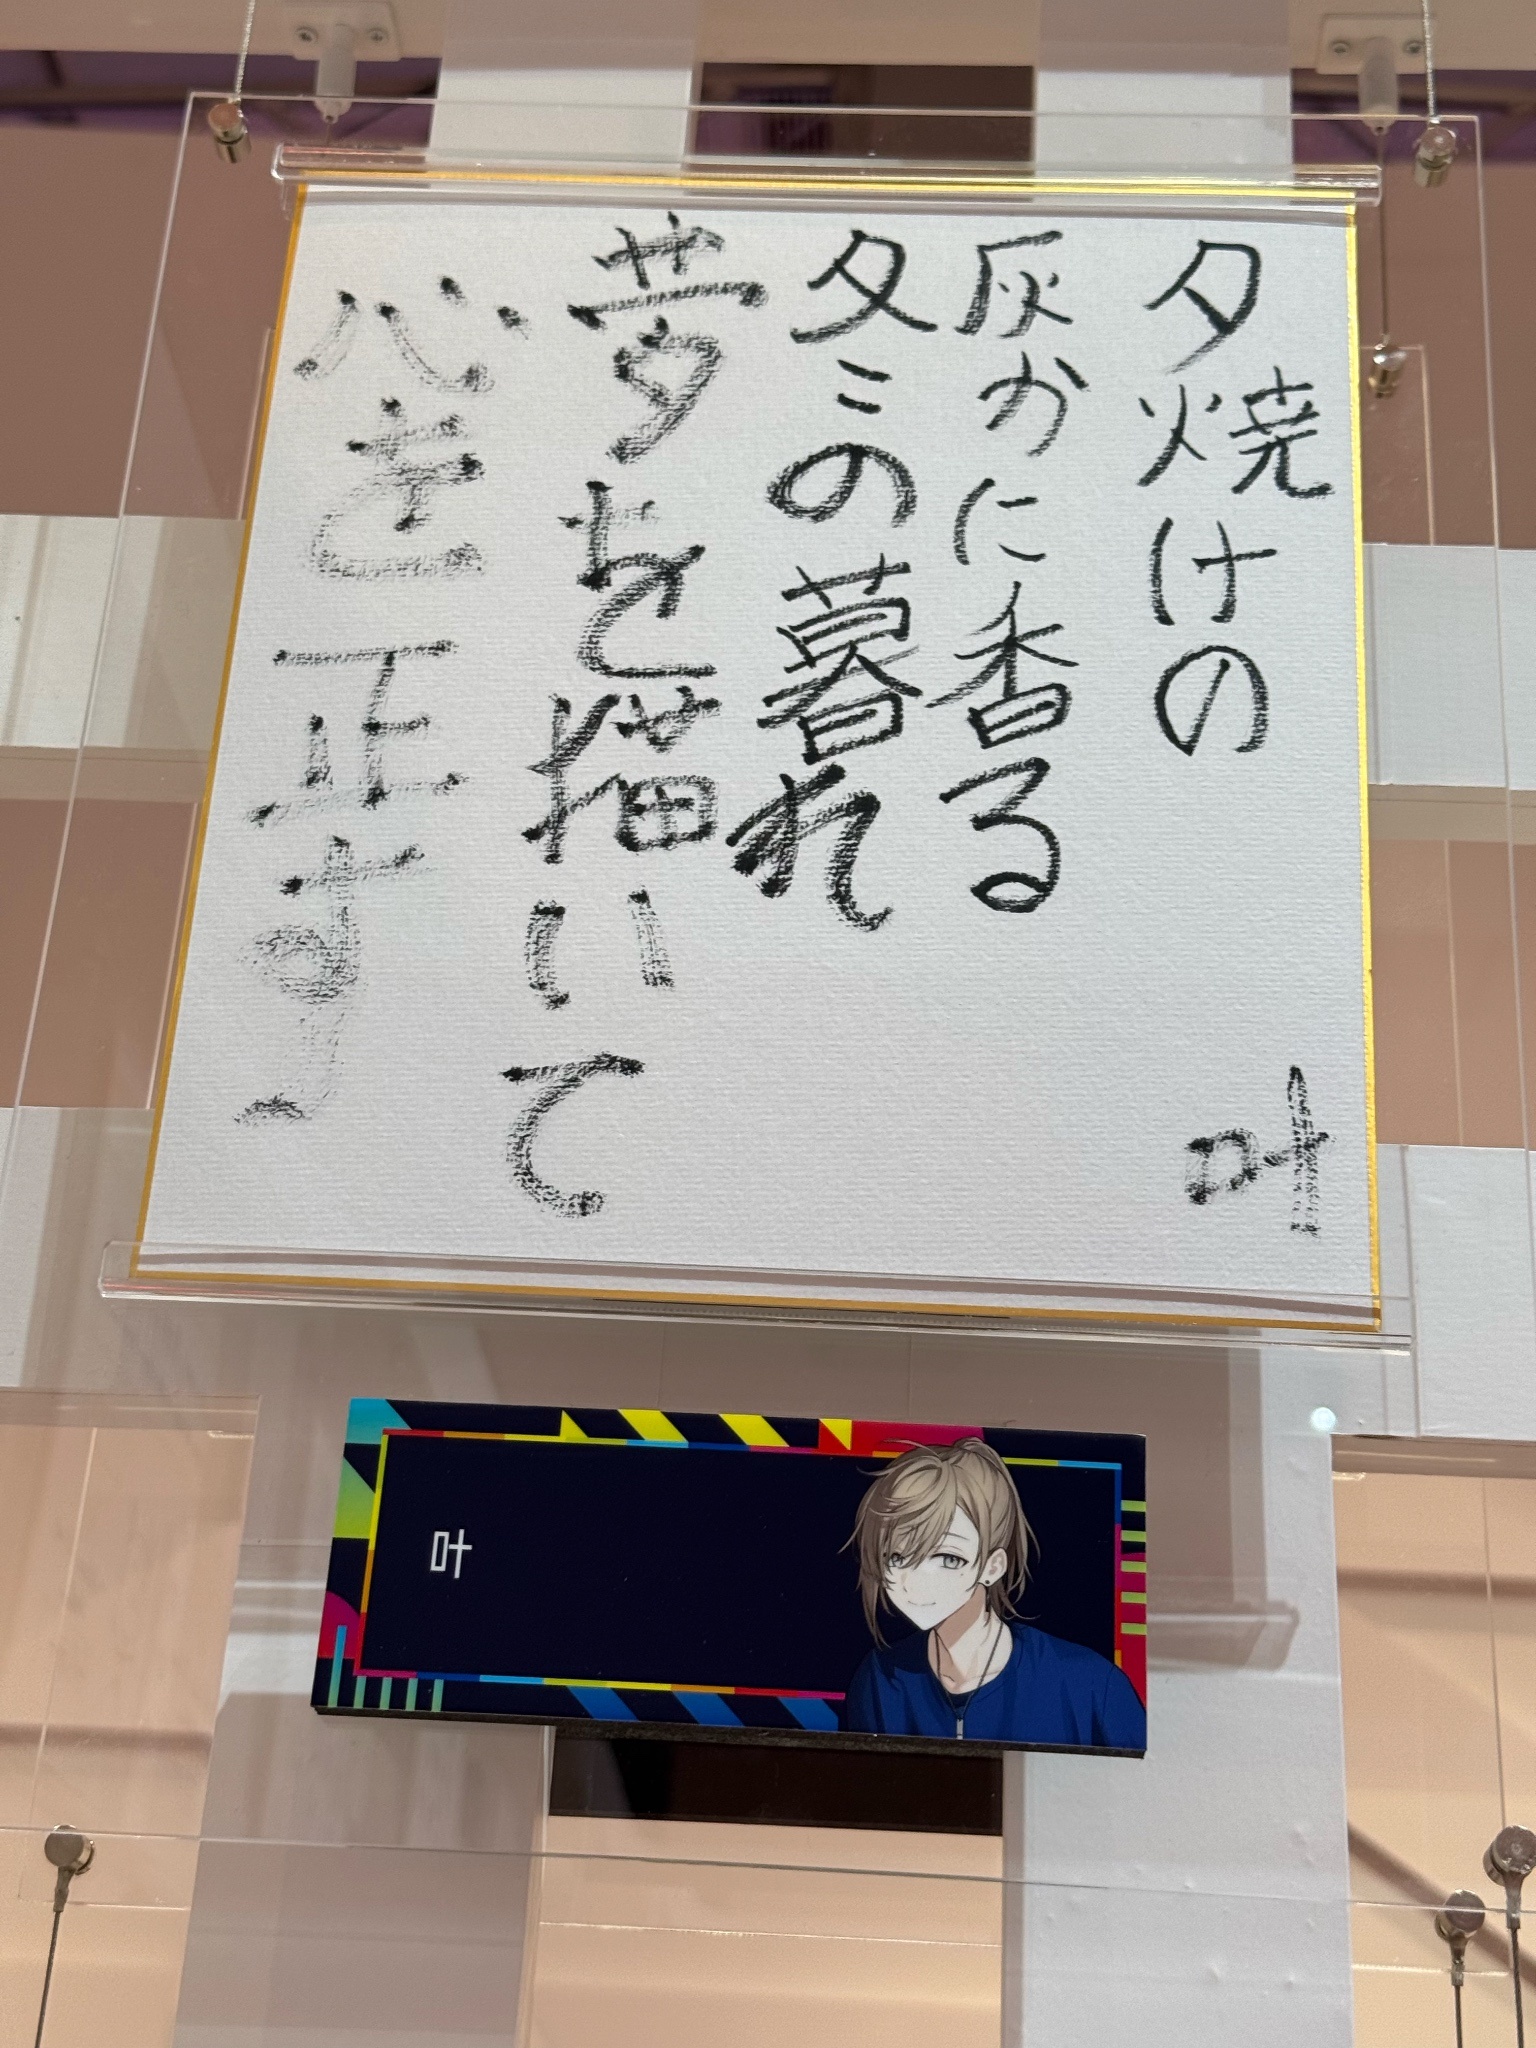 夕焼けの
灰かに香る
夕ミの暮れ
夢を描いて
心を正す
叶
叶